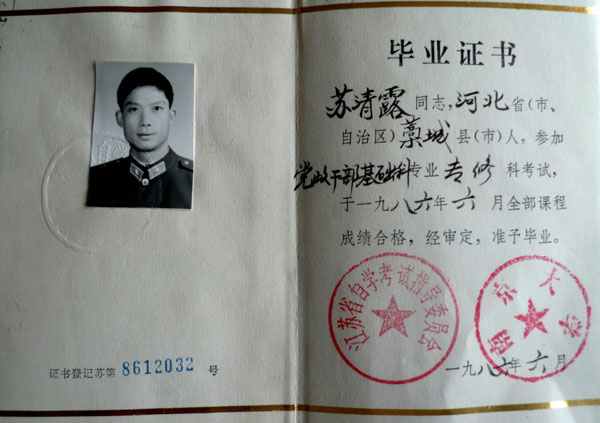 证书登记苏第 8612032 号
毕业证书
苏清露同志,河北省(市、
自治区)藁城县(市)人,参加
党政干部基础科专业专修科考试,
于一九八六年六月全部课程
成绩合格,经审定,准予毕业。
江苏省自学考试指导委员会
南京大学
一九八六年六月